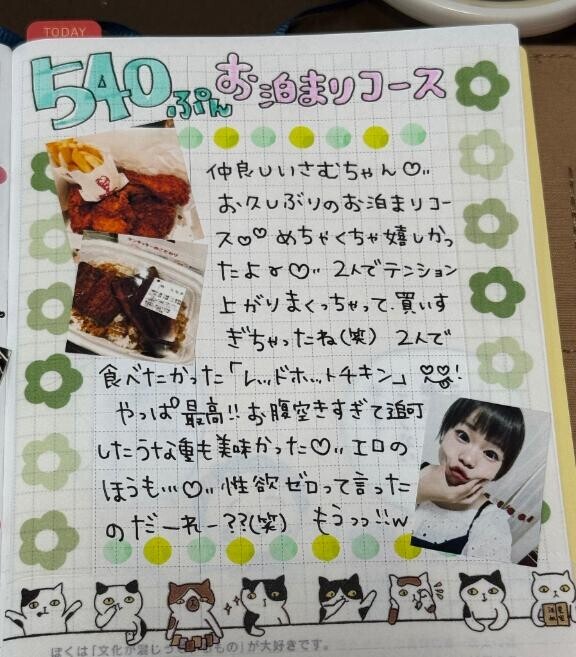 TODAY
540ぷん お泊まりコース
仲良しいさむちゃん♡
お久しぶりのお泊まりコー
ス♡♡ めちゃくちゃ嬉しかっ
たよɤ♡ 2人でテンション
上がりまくっちゃって、買いす
ぎちゃったね(笑) 2人で
食べたかった「レッドホットチキン」!
やっぱ最高!! お腹空きすぎて追可
したうな重も美味かった♡ エロの
ほうも…♡ 性欲ゼロって言った
のだーれー??(笑) もうっっ!!w
ぼくは「文化が混じっ もの」が大好きです。